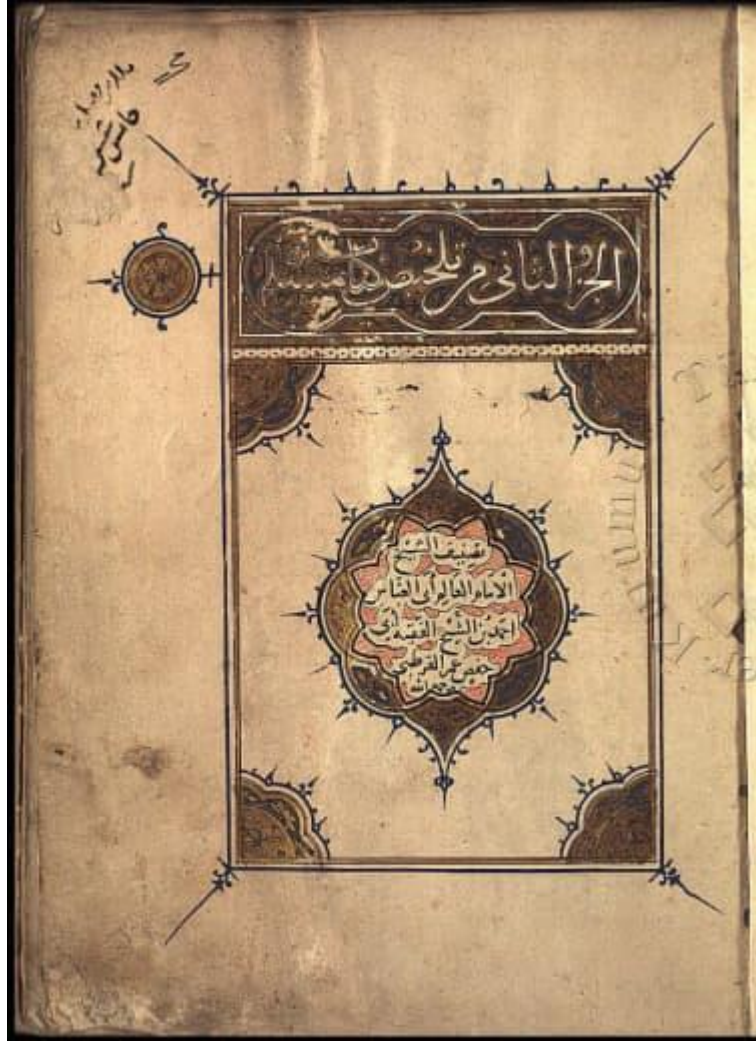 الجزء الثاني من تلخيص كتاب مسلم
تصنيف الشيخ
الامام العالم أبي العباس
احمد بن الشيخ الفقيه أبي
حفص عمر القرطبي
رحمه الله